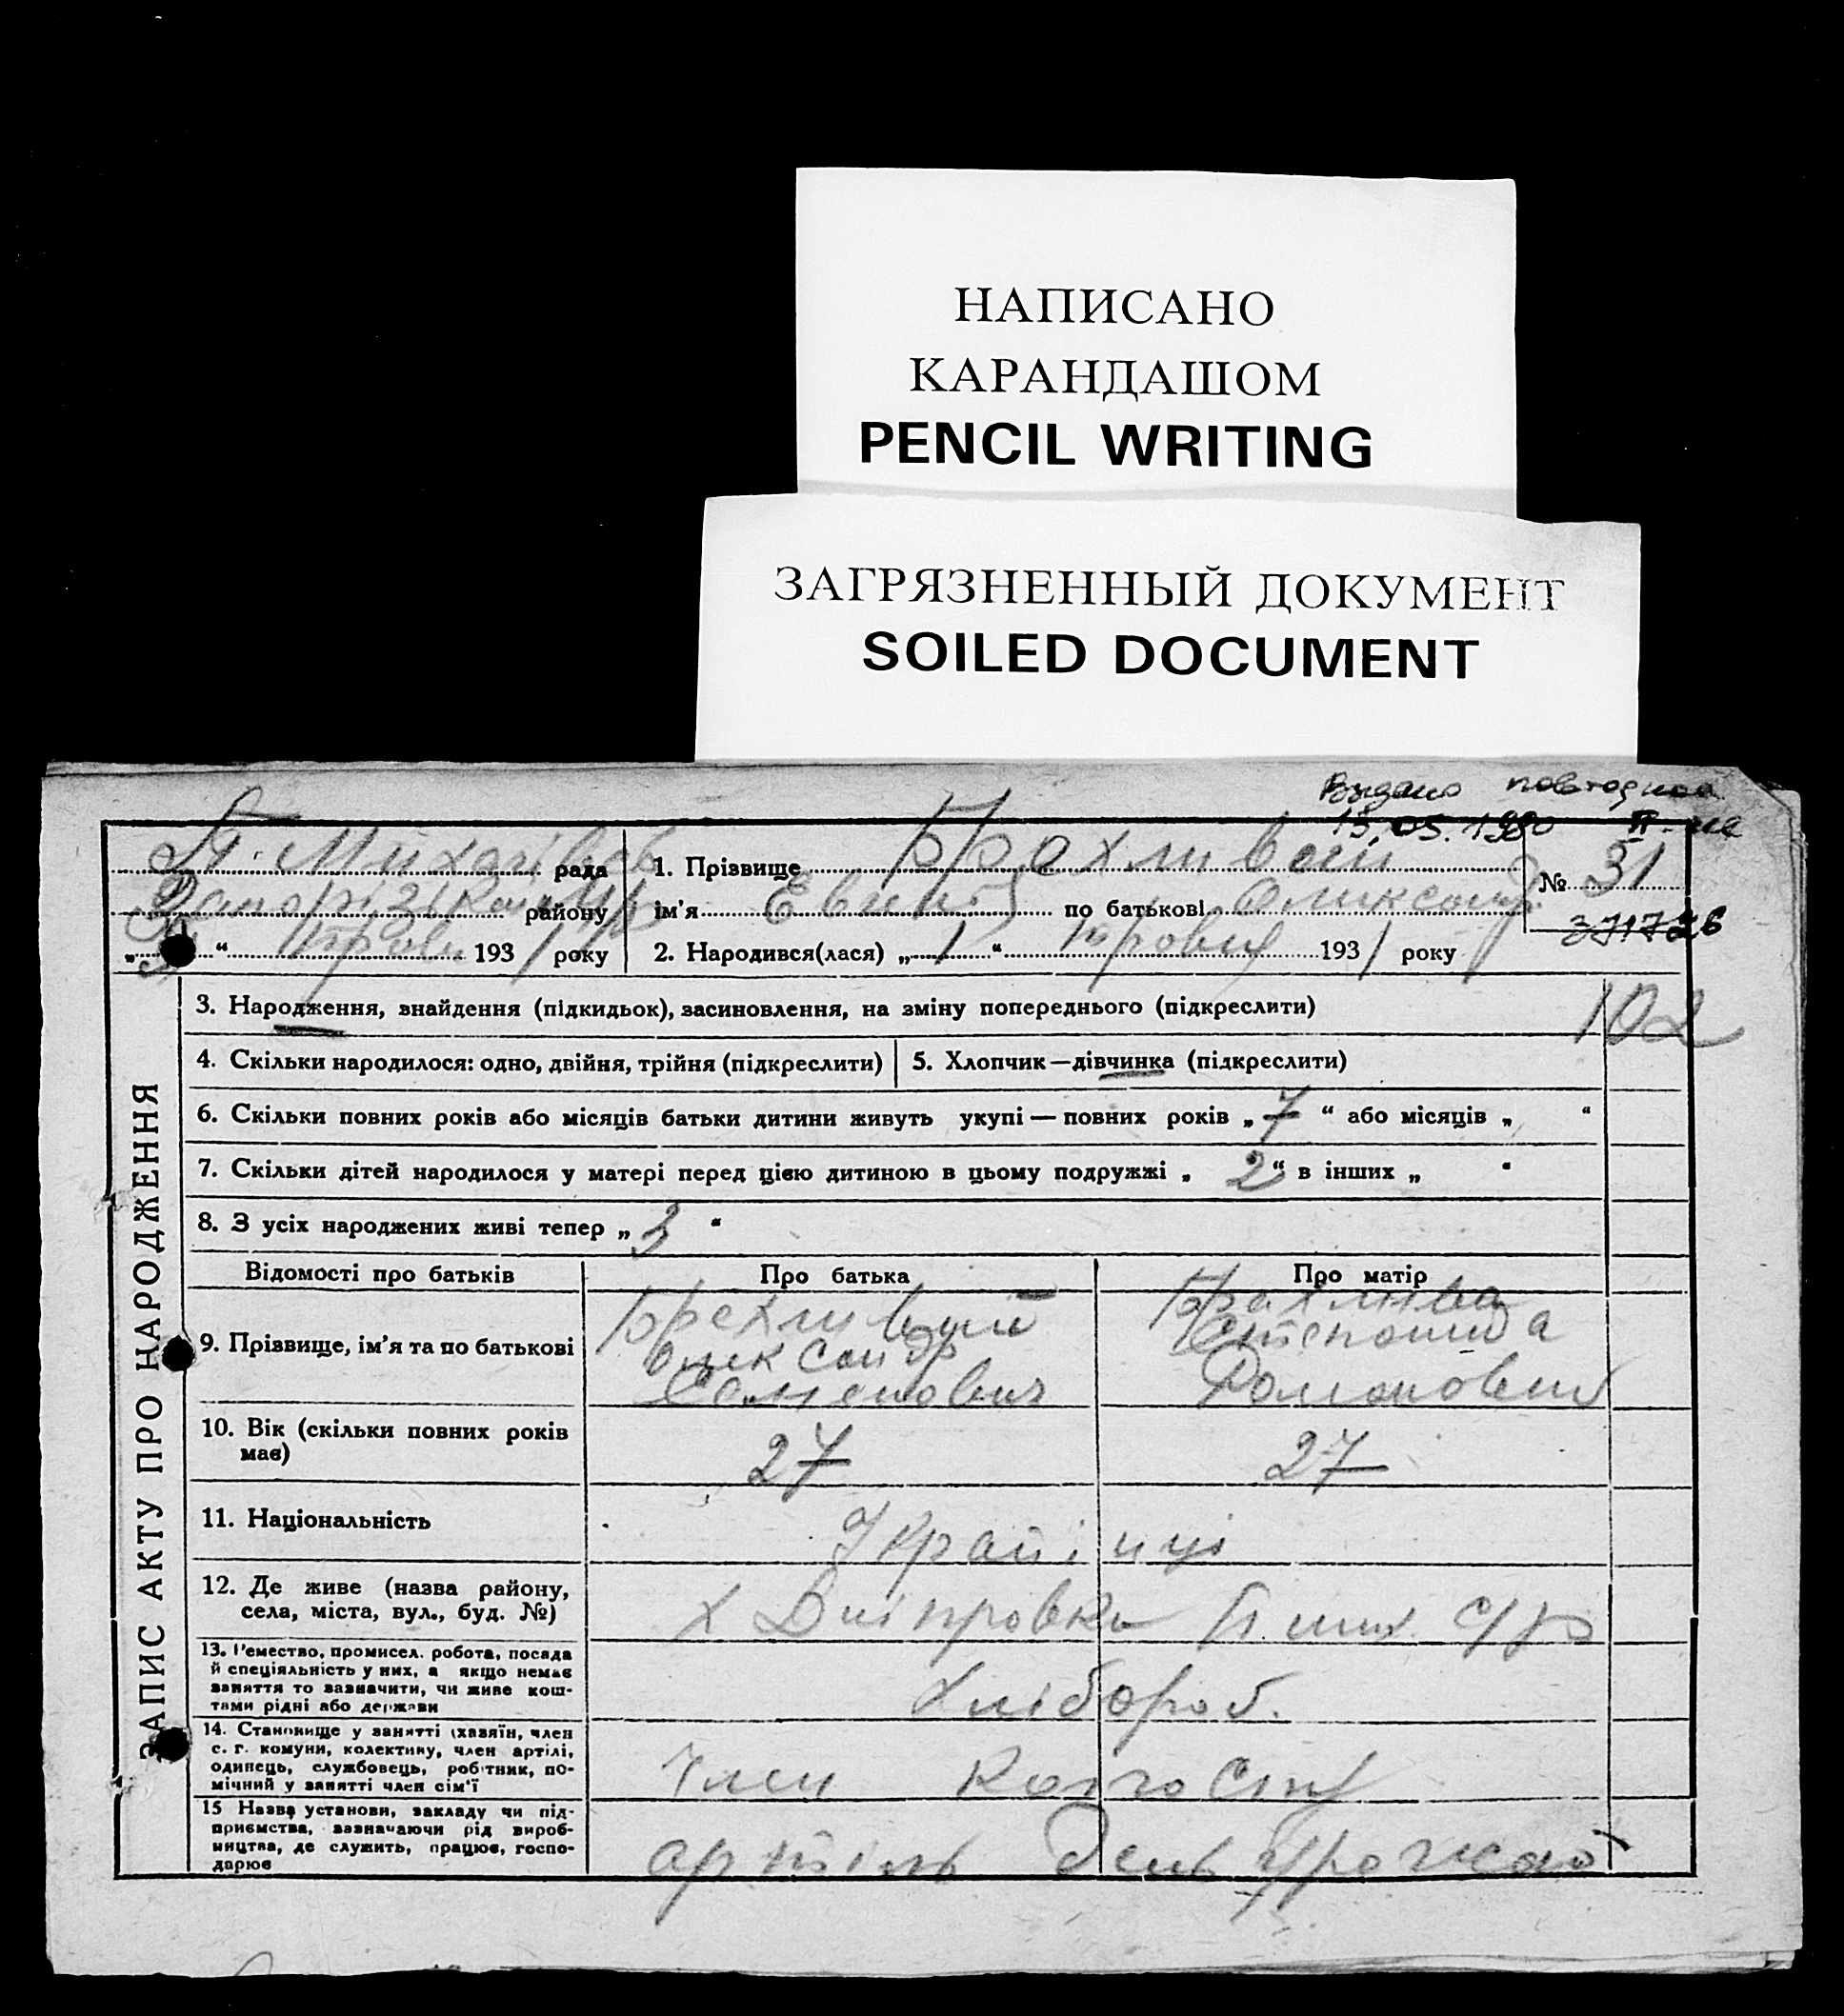 НАПИСАНО
КАРАНДАШОМ
PENCIL WRITING
ЗАГРЯЗНЕННЫЙ ДОКУМЕНТ
SOILED DOCUMENT
Выдано повторное
15.05.1990 II-ЖС
рада
району
“ 193 1 року
1. Прізвище
ім'я по батькові
2. Народився(лася) „ 1 “ 193 1 року
№ 31
102
ЗАПИС АКТУ ПРО НАРОДЖЕННЯ
3. Народження, знайдення (підкидьок), засиновлення, на зміну попереднього (підкреслити)
4. Скільки народилося: одно, двійня, трійня (підкреслити)
5. Хлопчик—дівчинка (підкреслити)
6. Скільки повних років або місяців батьки дитини живуть укупі — повних років „ 7 “ або місяців „ “
7. Скільки дітей народилося у матері перед цією дитиною в цьому подружжі „ 2 “ в інших „ “
8. З усіх народжених живі тепер „ 3 “
Відомості про батьків
Про батька
Про матір
9. Прізвище, ім'я та по батькові
Брехливий
Олександр
Семенович
Степанида
10. Вік (скільки повних років
має)
27
27
11. Національність
Українці
12. Де живе (назва району,
села, міста, вул., буд. №)
х Дніпровка
13. Ремество, промисел. робота, посада
й спеціяльність у них, а якщо немає
заняття то зазначити, чи живе кош-
тами рідні або держави
Хлібороб.
14. Становище у занятті (хазяїн, член
с. г. комуни, колективу, член артілі,
одинець, службовець, робітник, по-
мічний у занятті член сім'ї
Член
15 Назва установи, закладу чи під-
приємства, зазначаючи рід вироб-
ництва, де служить, працює, госпо-
дарює
артіль День Урожаю